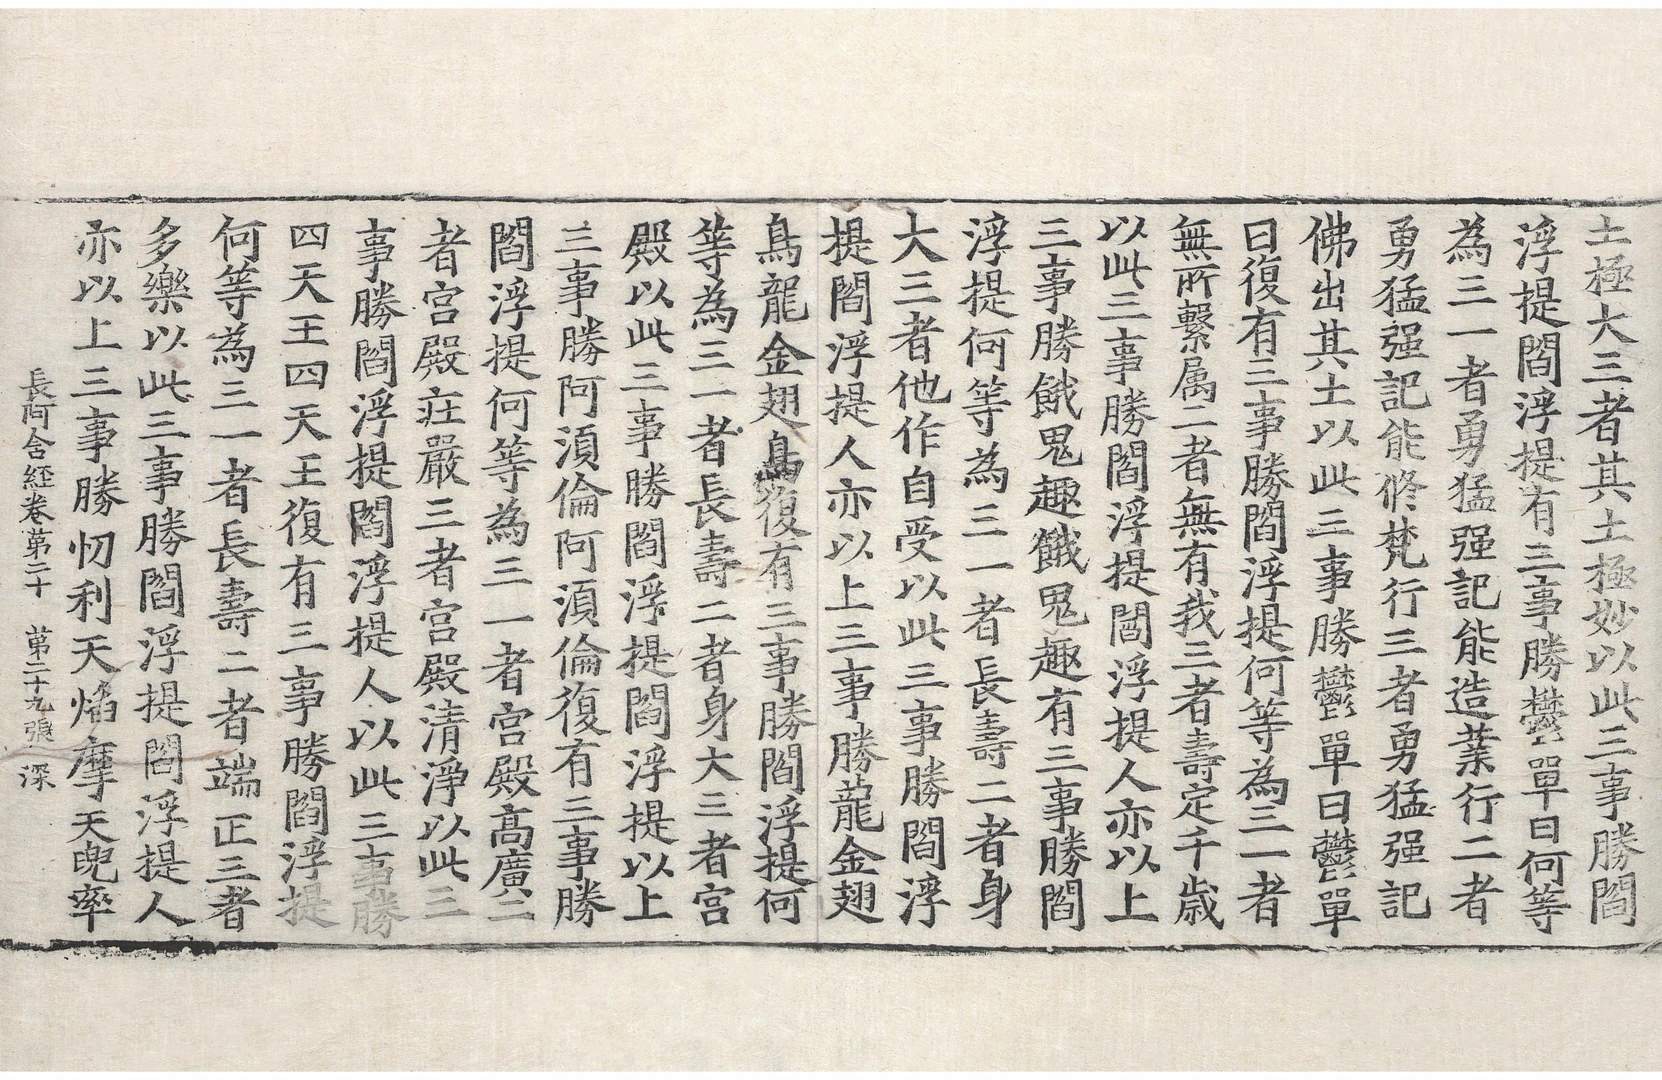 土極大三者其土極妙以此三事勝閻
浮提閻浮提有三事勝欝單曰何等
為三一者勇猛强記能造業行二者
勇猛强記能修梵行三者勇猛强記
佛出其土以此三事勝欝單曰欝單
曰復有三事勝閻浮提何等為三一者
無所繫属二者無有我三者壽定千歲
以此三事勝閻浮提閻浮提人亦以上
三事勝餓鬼趣餓鬼趣有三事勝閻
浮提何等為三一者長壽二者身
大三者他作自受以此三事勝閻浮
提閻浮提人亦以上三事勝龍金翅
鳥龍金翅鳥復有三事勝閻浮提何
等為三一者長壽二者身大三者宮
殿以此三事勝閻浮提閻浮提以上
三事勝阿湏倫阿湏倫復有三事勝
閻浮提何等為三一者宮殿髙廣二
者宮殿莊嚴三者宮殿清淨以此三
事勝閻浮提閻浮提人以此三事勝
四天王四天王復有三事勝閻浮提
何等為三一者長壽二者端正三者
多樂以此三事勝閻浮提閻浮提人
亦以上三事勝忉利天焰摩天兜率
長阿含經卷第二十 第二十九張 深